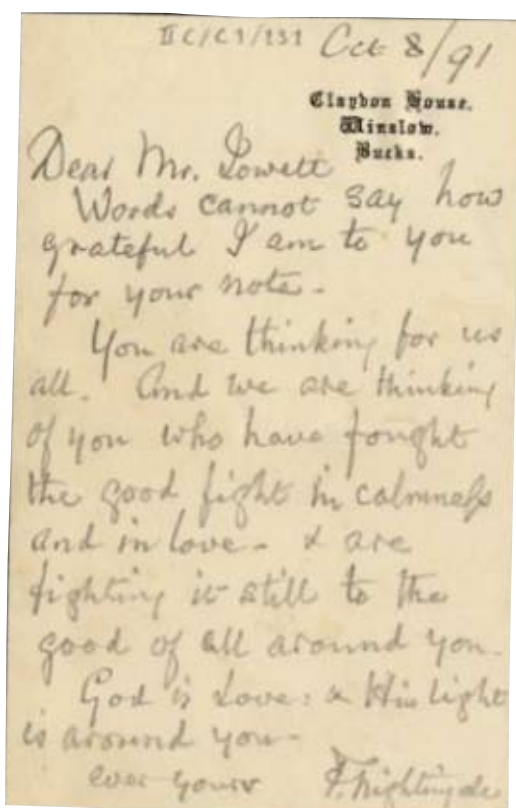 II C/C1/131 Oct 8/91
Claydon House,
Winslow,
Bucks.
Dear Mr. Jowett
Words cannot say how
grateful I am to you
for your note -
You are thinking for us
all. And we are thinking
of you who have fought
the good fight in calmness
and in love - & are
fighting it still to the
good of all around you.
God is Love: & His light
is around you -
ever yours F. Nightingale